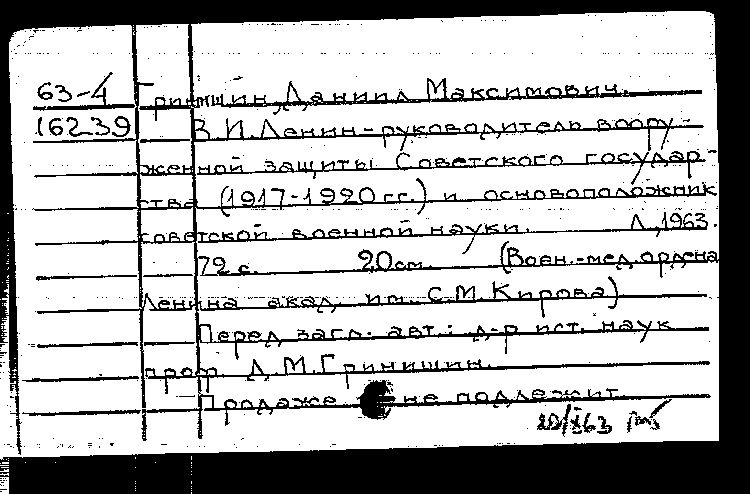 63-4 Гринишин, Даниил Максимович.
16239 В.И.Ленин-руководитель воору-
женной защиты Советского государ-
ства (1917-1920гг.) и основоположник
советской военной науки. Л.,1963.
72 с. 20см. (Воен.-мед.ордена
Ленина акад. им. С.М.Кирова)
Перед загл. авт.: д-р ист. наук
проф. Д.М.Гринишин.
Продаже не подлежит